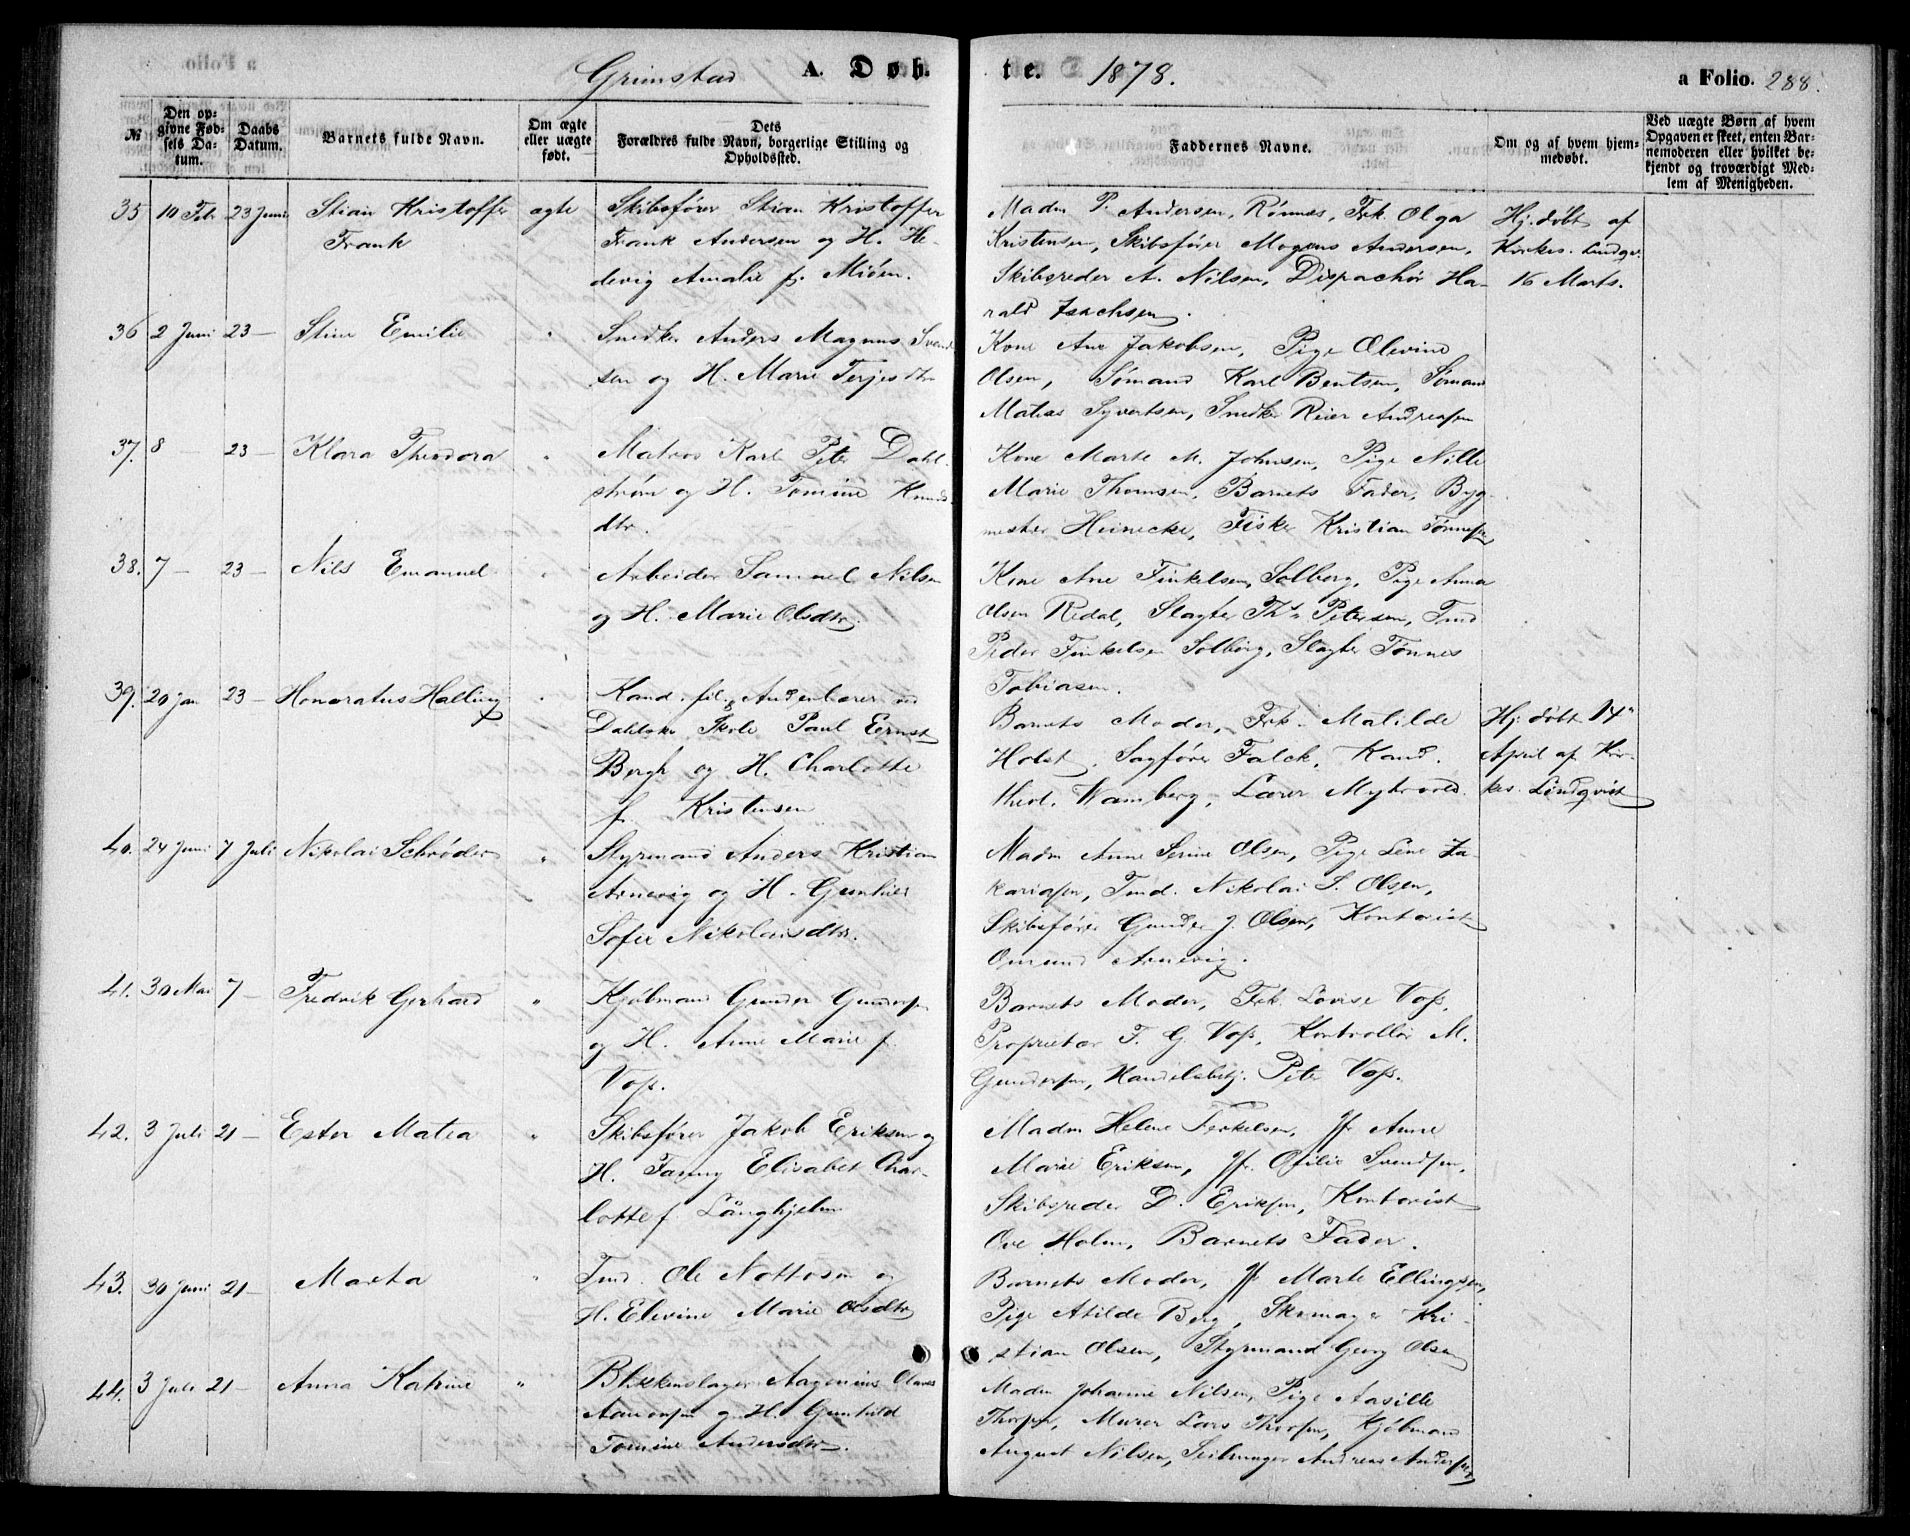 Grimstad A. Døb-
te. 1878. a Folio. 288.
№ Den opgivne Fødsels Datum. Daabs Datum. Barnets fulde Navn. Om ægte eller uægte født. Dets Forældres fulde Navn, borgerlige Stilling og Opholdssted. Faddernes Navne. Om og af hvem hjemmedøbt. Ved uægte Børn af hvem Opgaven er skeet, enten Barnemoderen eller hvilket bekjendt og troværdigt Medlem af Menigheden.
35 10 Feb 23 Juni Stian Kristoffer ægte Skibsfører Stian Kristoffer Madm P. Andersen, Rønnes, Frk Olga Hj. døbt af
Frank Frank Andersen og H. He- Kristensen, Skibsfører Mogens Andersen, Kirkes. Lindqv.
devig Amalie f. Miøen. Skibsreder A. Nilsen, Dispachør Ha- 16 Marts.
rald Isachsen.
36 2 Juni 23 — Stine Emilie " Snedker Anders Magnus Svend Kone Ane Jakobsen, Pige Olevine
sen og H. Marie Terjesdtr Olsen, Sømand Karl Bentsen, Sømand
Matias Syvertsen, Snedker Reier Andreasen
37. 8 — 23 — Klara Theodora " Matros Karl Peter Dahl- Kone Marte M. Johnsen, Pige Nille
strøm og H. Tomine Knuds Marie Thomsen, Barnets Fader, Byg-
dtr. mester Heinecke, Fisker Kristian Tønnesen
38. 7 — 23 — Nils Emanuel " Arbeider Samuel Nilsen Kone Ane Finkelsen, Solberg, Pige Anna
og H. Marie Olsdtr. Olsen Redal, Slagter Ths Petersen, Tmd
Peder Finkelsen Solberg, Slagter Tønnes
Tobiasen.
39. 20 Jan 23 — Honoratus Halling " Kand. fil. Andenlærer ved Barnets Moder, Frk. Matilde Hj. døbt 14
Dahlske Skole Paul Ernst Holst, Sagfører Falck, Kand. April af Kir-
Bergh og H. Charlotte theol. Wamberg, Lærer Myhrvold. kes. Lindqvist
f. Kristensen
40. 24 Juni 7 Juli Nikolai Schrøder " Styrmand Anders Kristian Madm Anne Serine Olsen, Pige Lene Za-
Arnevig og H. Gunhild kariasen, Tmd. Nikolai S. Olsen,
Sofie Nikolaisdtr. Skibsfører Gunder J. Olsen, Kontorist
Omund Arnevig.
41. 30 Mai 7 — Fredrik Gerhard " Kjøbmand Gunder Gundersen Barnets Moder, Frk. Lovise Voss,
og H. Anne Marie f. Proprietær F. G. Voss, Kontrollør M.
Voss. Gundersen, Handelsbetj. Peter Voss.
42. 3 Juli 21 — Ester Matea " Skibsfører Jakob Eriksen og Madm Helene Terkelsen, Jfr Anne
H. Fanny Elisabet Char- Marie Eriksen, Jfr. Otilie Svendsen,
lotte f. Långhjelm Skibsreder D. Eriksen, Kontorist
Ove Holm, Barnets Fader.
43. 30 Juni 21 — Marta " Tmd. Ole Nottosen og Barnets Moder, Jfr Marte Ellingsen,
H. Elevine Marie Olsdtr Pige Atilde Berg, Skomager Kri-
stian Olsen, Styrmand Georg Olsen
44. 3 Juli 21 — Anna Katrine " Blikkenslager Aagenius Olaves Madm Johanne Nilsen, Pige Aasille
Aanonsen og H. Gunhild Thorsen, Murer Lars Thorsen, Kjøbmand
Tomine Andersdtr. August Nilsen, Seilmager Andreas Andersen